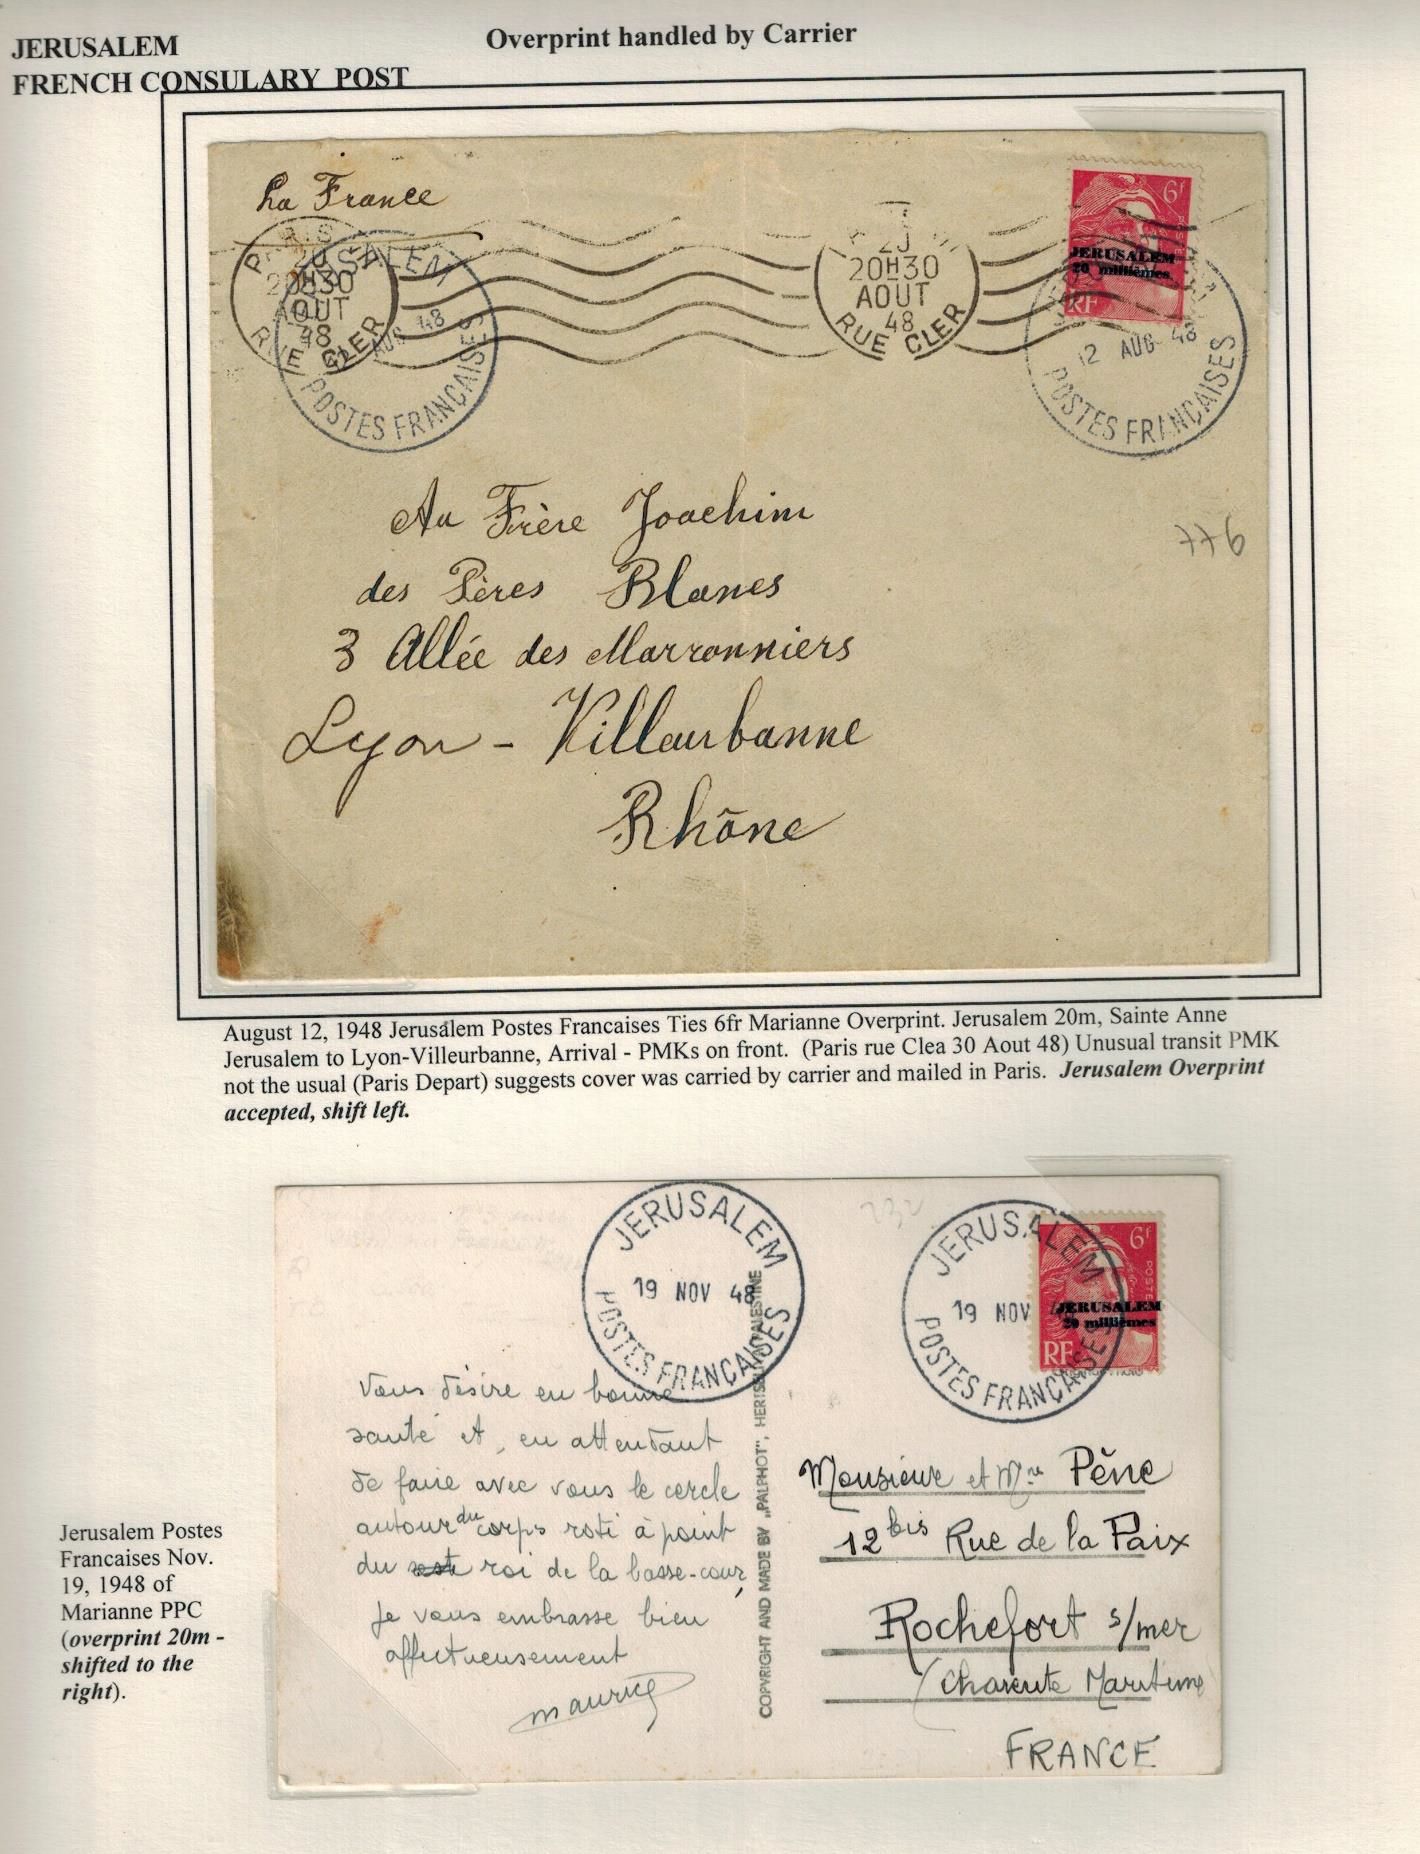 JERUSALEM
FRENCH CONSULARY POST
Overprint handled by Carrier
La France
PARIS
20H30
AOUT
48
RUE CLER
JERUSALEM
AUG 48
POSTES FRANÇAISES
20H30
AOUT
48
RUE CLER
6f
JERUSALEM
20 millièmes
RF
12 AUG 48
POSTES FRANÇAISES
Au Frère Joachim
des Pères Blancs
3 Allée des Marronniers
Lyon - Villeurbanne
Rhône
776
August 12, 1948 Jerusalem Postes Francaises Ties 6fr Marianne Overprint. Jerusalem 20m, Sainte Anne
Jerusalem to Lyon-Villeurbanne, Arrival - PMKs on front. (Paris rue Clea 30 Aout 48) Unusual transit PMK
not the usual (Paris Depart) suggests cover was carried by carrier and mailed in Paris. Jerusalem Overprint
accepted, shift left.
JERUSALEM
19 NOV 48
POSTES FRANÇAISES
232
JERUSALEM
19 NOV
POSTES FRANÇAISES
6f
POSTES
JERUSALEM
20 millièmes
RF
Vous désire en bonne
santé et, en attendant
de faire avec vous le cercle
autour du corps roti à point
du roi de la basse-cour,
je vous embrasse bien
affectueusement
Maurice
COPYRIGHT AND MADE BY „PALPHOT", HERTSELIYA PALESTINE
Monsieur et Mme Pène
12 bis Rue de la Paix
Rochefort s/mer
(Charente Maritime
FRANCE
Jerusalem Postes
Francaises Nov.
19, 1948 of
Marianne PPC
(overprint 20m -
shifted to the
right).